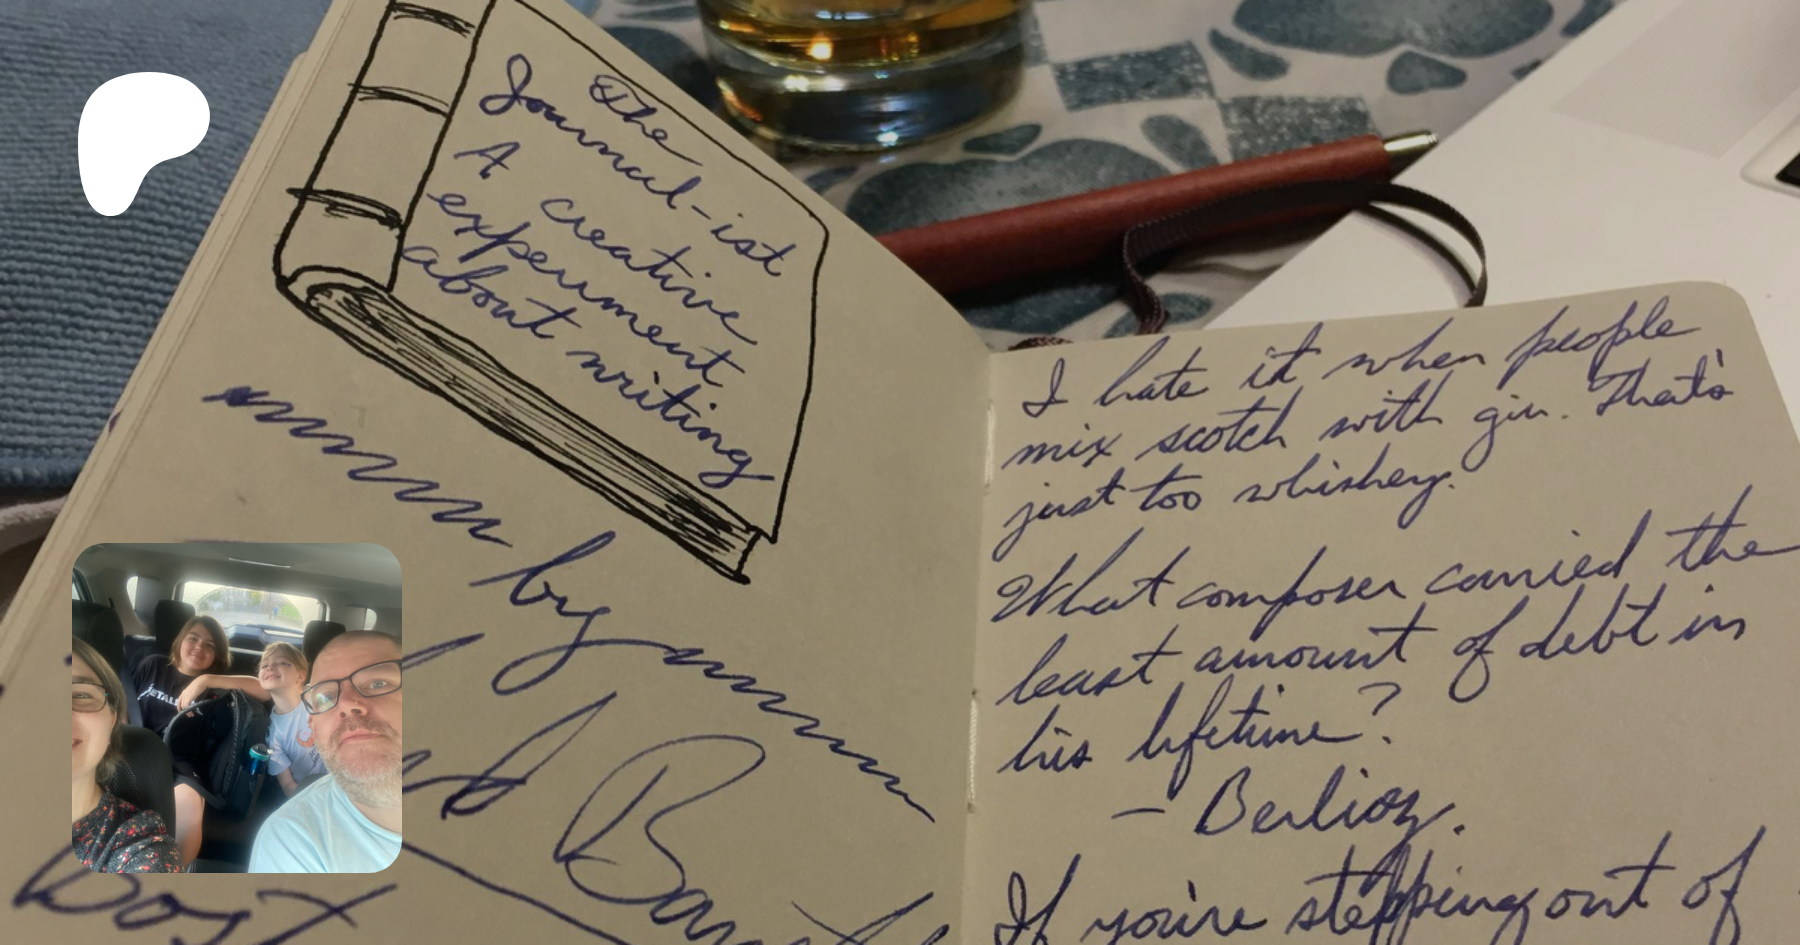 The
Journal-ist
A creative
experiment
about writing
by
I hate it when people
mix scotch with gin. That's
just too whiskey.
What composer carried the
least amount of debt in
his lifetime?
- Berlioz.
If you're stepping out of